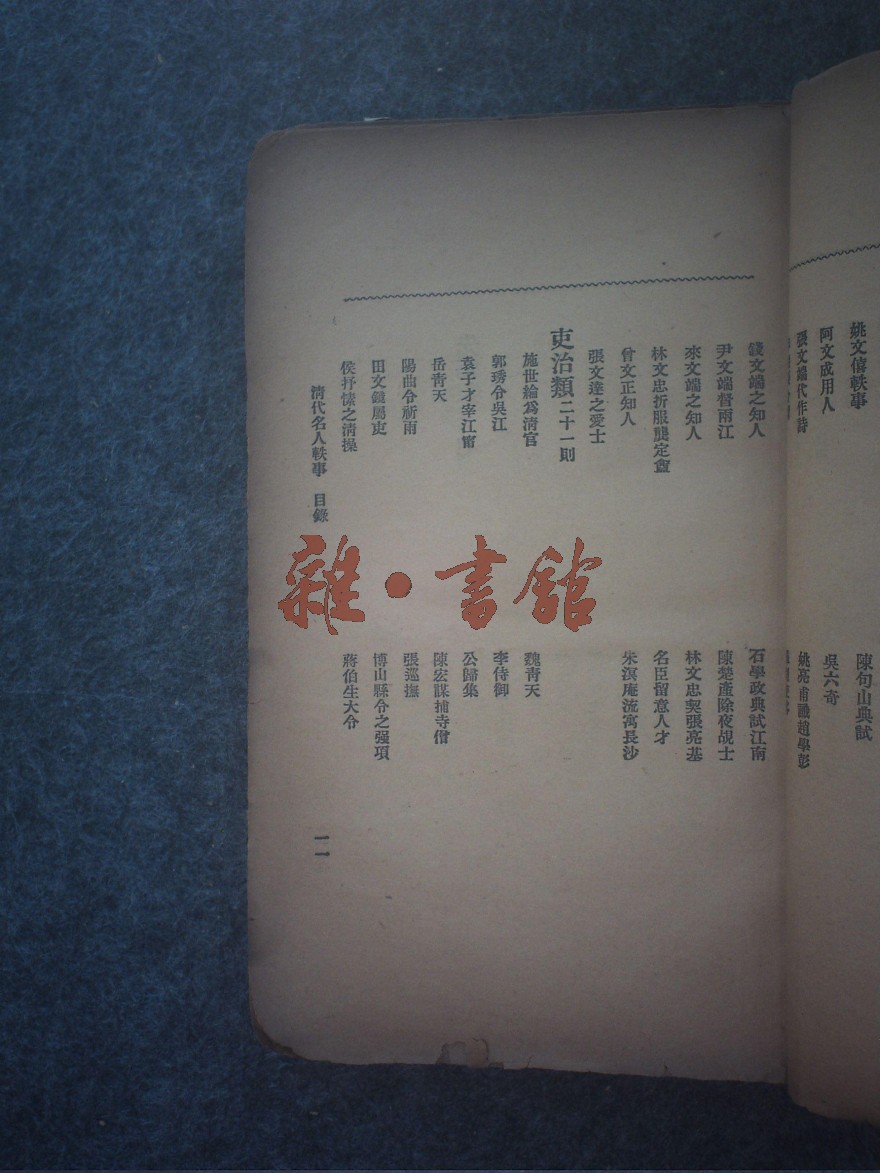 姚文僖軼事
陳句山典試
阿文成用人
吳六奇
張文端代作詩
姚亮甫識趙學彭
錢文端之知人
石學政典試江南
尹文端督兩江
陳楚產除夜覘士
來文端之知人
林文忠契張亮基
林文忠折服龔定盦
名臣留意人才
曾文正知人
朱溟庵流寓長沙
張文達之愛士
吏治類二十一則
施世綸爲清官
魏青天
郭琇令吳江
李侍御
袁子才宰江甯
公歸集
岳青天
陳宏謀捕寺僧
陽曲令祈雨
張巡撫
田文鏡屬吏
博山縣令之强項
侯抒愫之清操
蔣伯生大令
清代名人軼事 目錄
一一
雜·書館